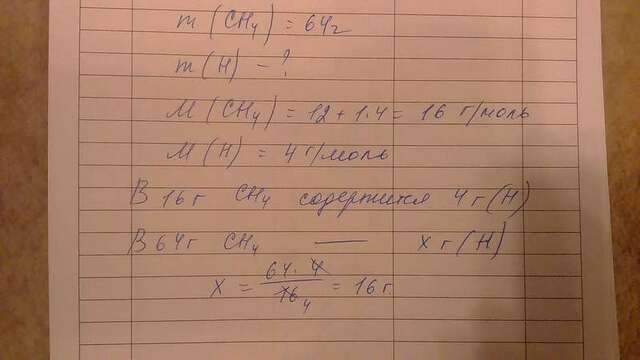 m(CH₄) = 64г
m(H) - ?
M(CH₄) = 12 + 1·4 = 16 г/моль
M(H) = 4 г/моль
В 16г CH₄ содержится 4г(H)
В 64г CH₄ — x г(H)
x = 64·4/16 4 = 16г